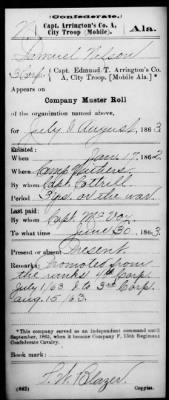 (Confederate.)
Capt. Arrington's Co. A,
City Troop (Mobile).
Ala.
Samuel Nelson
Corp., Capt. Edmund T. Arrington's Co.
A, City Troop. [Mobile Ala.]*
Appears on
Company Muster Roll
of the organization named above,
for July & August, 1863
Enlisted:
When Jan 17, 1862
Where
By Capt. Cottrill
Period 3 yrs. or the war
Last paid:
By Capt. McVoy
To what time June 30, 1863
Present or absent Present
Remarks: Promoted from
the ranks 4th Corp.
July 1/63 & to 3rd Corp.
Aug. 15/63.
*This company served as an independent command until
September, 1863, when it became Company F, 15th Regiment
Confederate Cavalry.
Book mark:
S. W. Blazer
(642)
Copyist.